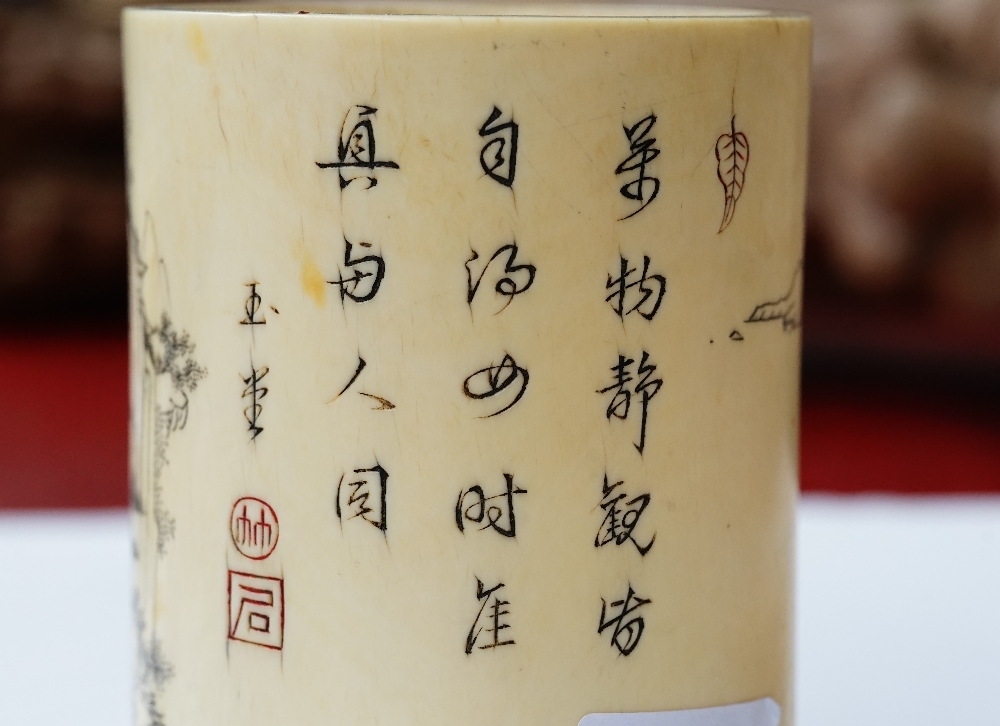 萬物静觀皆
自得四时佳
興与人同
玉堂
竹
石